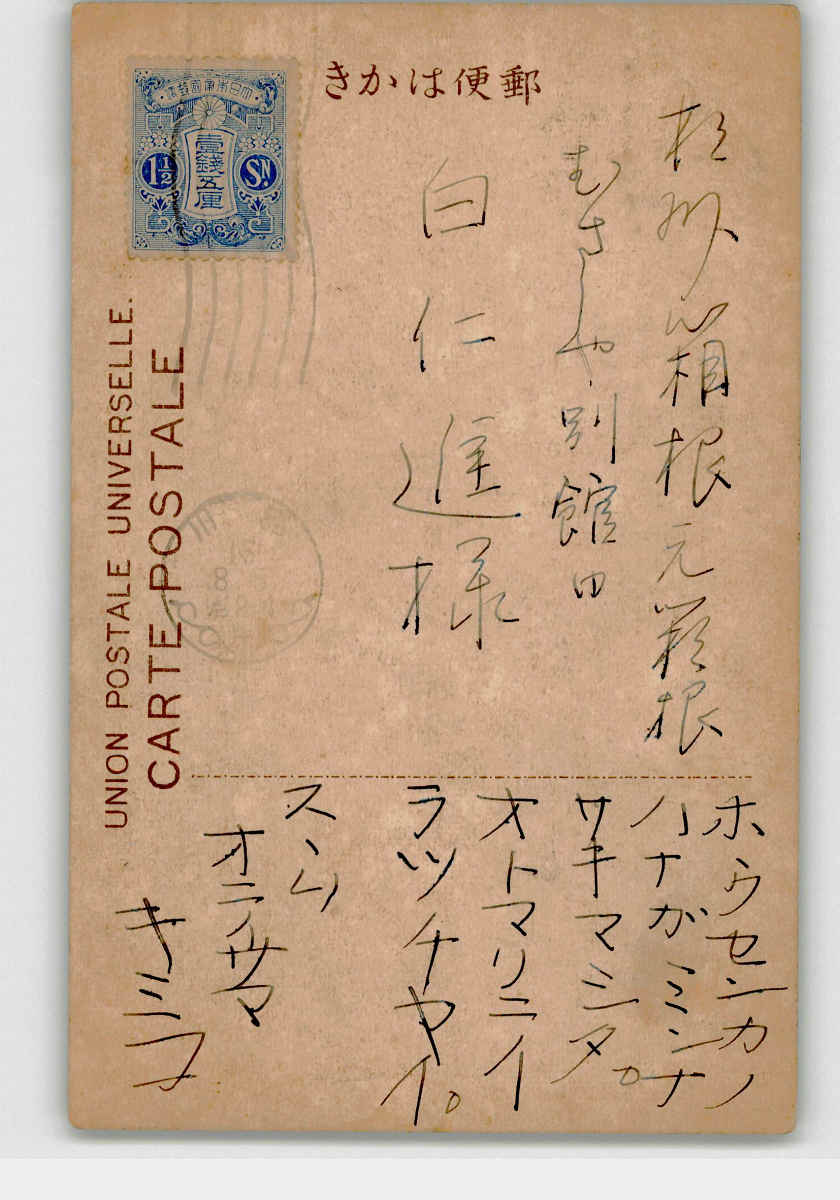 郵便はかき
大日本帝國郵便
壹錢五厘
1½ Sn.
UNION POSTALE UNIVERSELLE.
CARTE POSTALE
相州箱根元箱根
むさしや別館内
白仁進様
ホウセンカノ
ハナガミンナ
サキマシタ。
オトマリニイ
ラツチヤイ。
スヽム
オニイサマ
キミコ